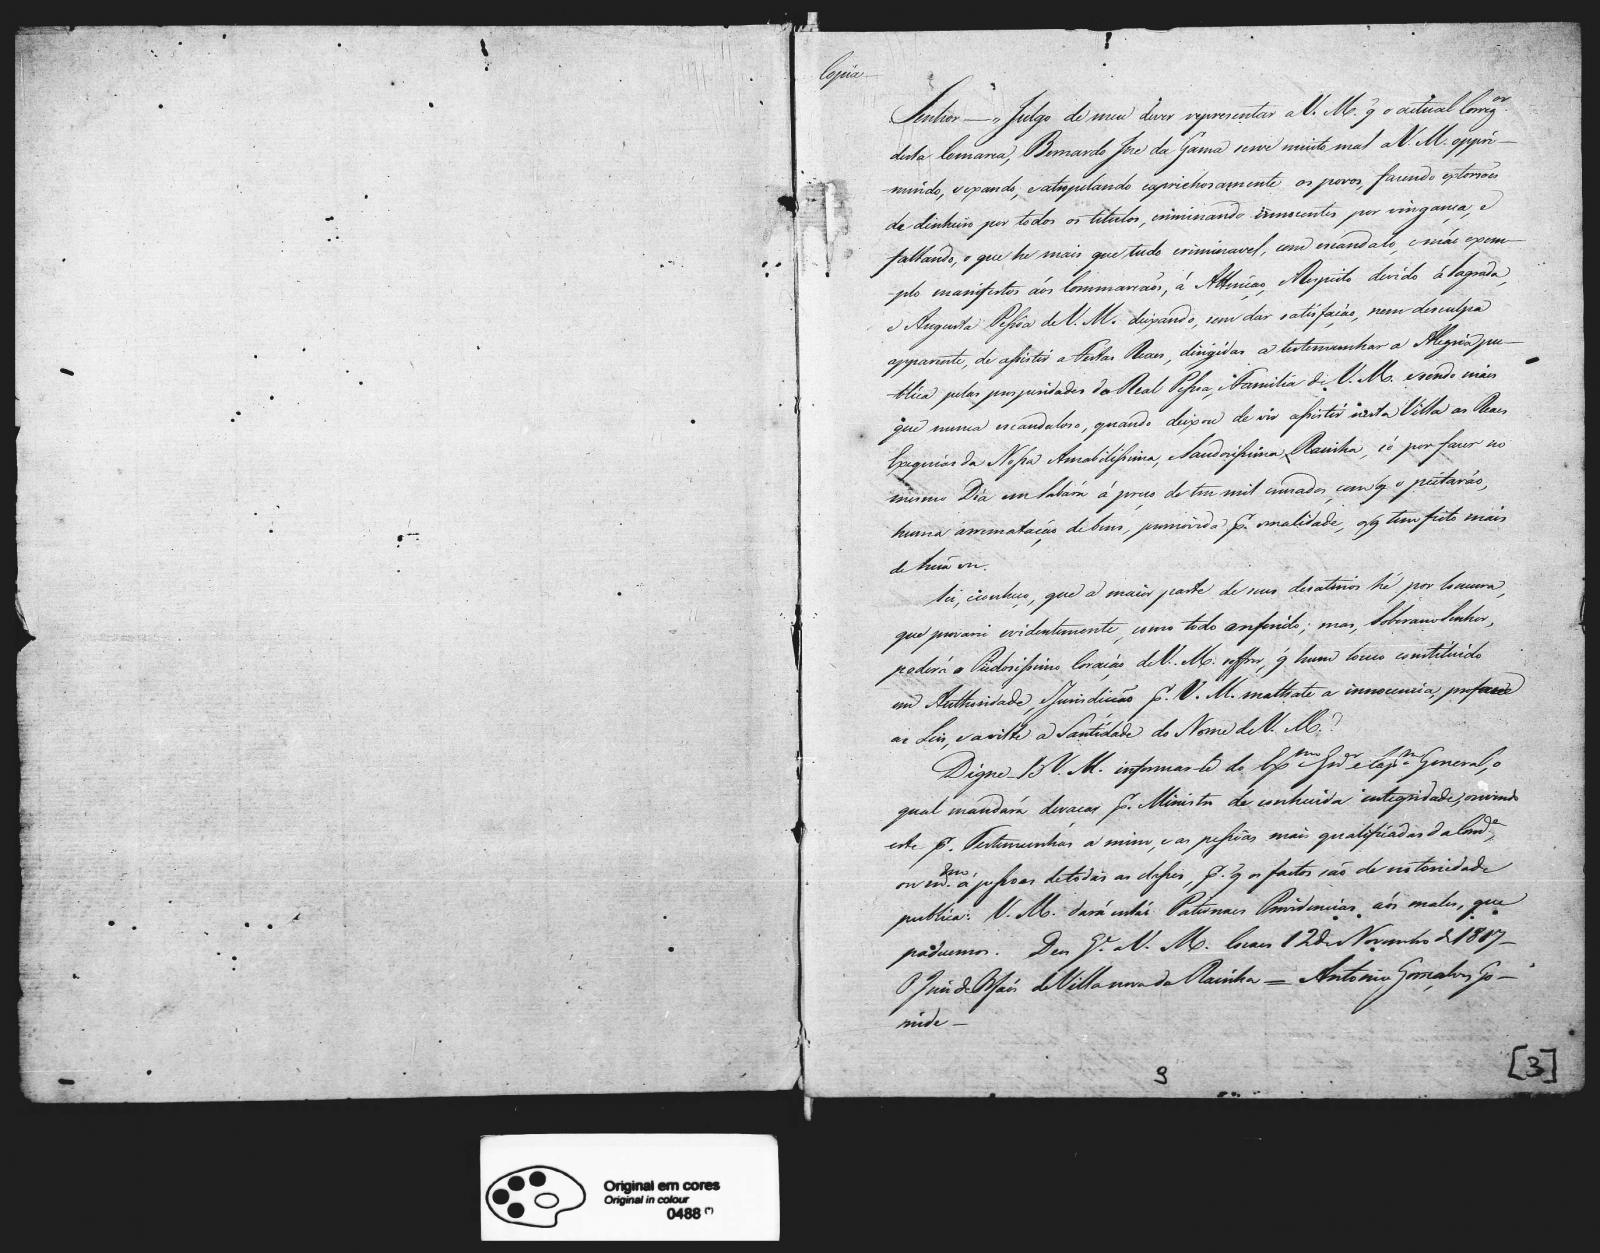 Copia
Senhor — „ Julgo de meu dever representar a V. M. q̃ o actual Correg.or
desta Comarca, Bernardo Jose da Gama serve muito mal a V. M. oppri-
mindo, vexando, e atropelando caprichosamente os povos, fazendo extorsões
de dinheiro por todos os titulos, criminando innocentes por vingança, e
faltando, o que he mais que tudo criminavel, com escandalo, e máo exem-
plo manifestos aos Commarcãos, á Attenção, e Respeito devido á Sagrada,
e Augusta Pessoa de V. M. deixando, sem dar satisfação, nem desculpa
apparente, de assistir a Festas Reaes, dirigidas a testemunhar a Alegria pu-
blica pelas prosperidades da Real Pessoa, e Familia de V. M. e sendo mais
que nunca escandaloso, quando deixou de vir assistir nesta Villa as Reaes
Exequias da Nossa Amabilissima, e Saudosissima Rainha, só por fazer no
mesmo Dia em Sabará á preço de tres mil cruzados, com q̃ o peitarão,
huma arrematação de bens, promovida p. venalidade, o q̃ tem feito mais
de huã vez.
Sei, e conheço, que a maior parte de seus desatinos hé por loucura,
que provarei evidentemente, como todo o referido; mas, Soberano Senhor,
poderá o Piedosissimo Coração de V. M. soffrer, q̃ hum louco constituido
em Authoridade, e Jurisdicção p. V. M. maltrate a innocencia, profane
as Leis, e avilte a Santidade do Nome de V. M.?
Digne-se V. M. informar-se do Ex.mo Gov.or e Cap.m General, o
qual mandará devaçar p. Ministro de conhecida integridade, ouvindo
este p. Testemunhas a mim, e as pessoas mais qualificadas da Com.ca,
ou m.mo á pessoas de todas as classes, p. q̃ os factos são de notoriedade
publica: V. M. dará então Paternaes Providencias aos males, que
padecemos. Deos G.e a V. M. Caeté 12 de Novembro de 1817 —
O Juiz de Orfãos de Villa nova da Rainha = Antonio Gonçalves Go-
mide —
9
[3]
Original em cores
Original in colour
0488 (*)